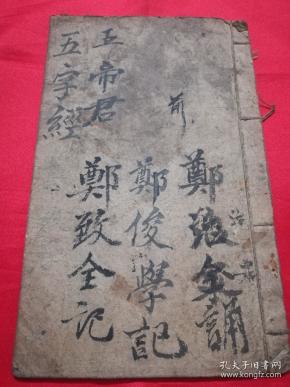 鄭致全誦
鄭俊學記
鄭致全記
前
王帝君
五字經
孔夫子旧书网